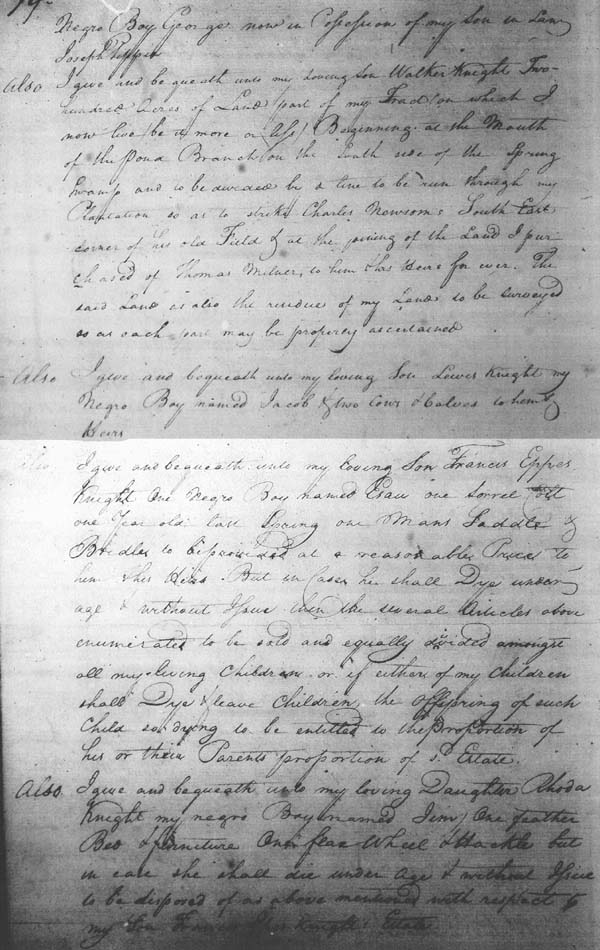 Negro Boy George now in Possession of my Son in Law
Joseph
Also I give and bequeath unto my loving Son Walker Knight Two
hundred Acres of Land part of my Tract on which I
now live (be it more or less) Beginning at the Mouth
of the Pond Branch on the South side of the Spring
Swamp and to be divided by a line to be run through my
Plantation so as to strike Charles Newsoms South East
corner of his old Field & at the joining of the Land I pur
chased of Thomas Milner, to him & his Heirs for ever. The
said Land as also the residue of my Land to be surveyed
so as each part may be properly ascertained
Also I give and bequeath unto my loving Son Lewis Knight my
Negro Boy named Jacob & two Cows & Calves to him &
Heirs
Also I give and bequeath unto my loving Son Francis Eppes
Knight One Negro Boy named Esau one sorrel Colt
one Year old last Spring one Mans Saddle &
Bridle to be provided at a reasonable Price to
him & his Heirs. But in case he shall Dye under
age & without Issue then the several Articles above
enumerated to be sold and equally divided amongst
all my living Children or if either of my Children
shall Dye & leave Children, the offspring of such
Child so dying to be entitled to the Proportion of
his or their Parents proportion of sd. Estate.
Also I give and bequeath unto my loving Daughter Rhoda
Knight my negro Boy named Jim, One feather
Bed & furniture One flax Wheel & Hackle but
in case she shall die under Age & without Issue
to be disposed of as above mentioned with respect to
my Son Francis Knights Estate